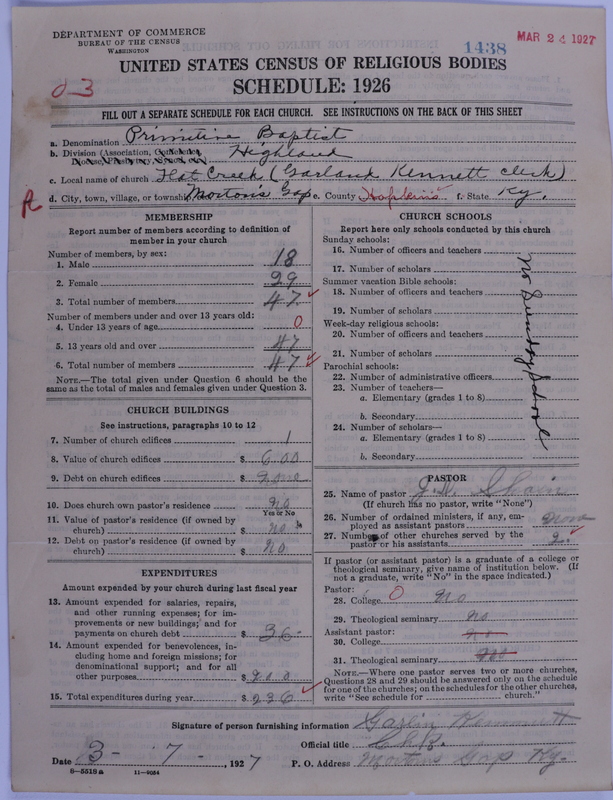 DEPARTMENT OF COMMERCE
BUREAU OF THE CENSUS
WASHINGTON
1438
MAR 24 1927
UNITED STATES CENSUS OF RELIGIOUS BODIES
SCHEDULE: 1926
FILL OUT A SEPARATE SCHEDULE FOR EACH CHURCH. SEE INSTRUCTIONS ON THE BACK OF THIS SHEET
a. Denomination Primitive Baptist
b. Division (Association, Conference, Diocese, Presbytery, Synod, etc.) Highland
c. Local name of church Flat Creek (Garland Kennett clerk)
d. City, town, village, or township Morton's Gap e. County Hopkins f. State Ky.
MEMBERSHIP
Report number of members according to definition of
member in your church
Number of members, by sex:
1. Male 18
2. Female 29
3. Total number of members 47
Number of members under and over 13 years old:
4. Under 13 years of age 0
5. 13 years old and over 47
6. Total number of members 47
NOTE.—The total given under Question 6 should be
same as the total of males and females given under Question 3.
CHURCH BUILDINGS
See instructions, paragraphs 10 to 12
7. Number of church edifices 1
8. Value of church edifices $ 600
9. Debt on church edifices $ none
10. Does church own pastor's residence no
Yes or No
11. Value of pastor's residence (if owned by
church) $ no
12. Debt on pastor's residence (if owned by
church) $ no
EXPENDITURES
Amount expended by your church during last fiscal year
13. Amount expended for salaries, repairs,
and other running expenses; for im-
provements or new buildings; and for
payments on church debt $ 36-
14. Amount expended for benevolences, in-
cluding home and foreign missions; for
denominational support; and for all
other purposes $ 200
15. Total expenditures during year $ 236
CHURCH SCHOOLS
Report here only schools conducted by this church
Sunday schools:
16. Number of officers and teachers
17. Number of scholars
Summer vacation Bible schools:
18. Number of officers and teachers
19. Number of scholars
Week-day religious schools:
20. Number of officers and teachers
21. Number of scholars
Parochial schools:
22. Number of administrative officers
23. Number of teachers—
a. Elementary (grades 1 to 8)
b. Secondary
24. Number of scholars—
a. Elementary (grades 1 to 8)
b. Secondary
no Sunday School
PASTOR
25. Name of pastor
(If church has no pastor, write "None")
26. Number of ordained ministers, if any, em-
ployed as assistant pastors none
27. Number of other churches served by the
pastor or his assistants 2
If pastor (or assistant pastor) is a graduate of a college or
theological seminary, give name of institution below. (If
not a graduate, write "No" in the space indicated.)
Pastor:
28. College 0 no
29. Theological seminary no
Assistant pastor:
30. College no
31. Theological seminary
NOTE.—Where one pastor serves two or more churches,
Questions 28 and 29 should be answered only on the schedule
for one of the churches; on the schedules for the other churches,
write "See schedule for church."
Signature of person furnishing information Garlin Kennett
Official title Clk.
Date 3- 7- , 1927 P. O. Address Mortons Gap Ky.
8-5518a 11-9034